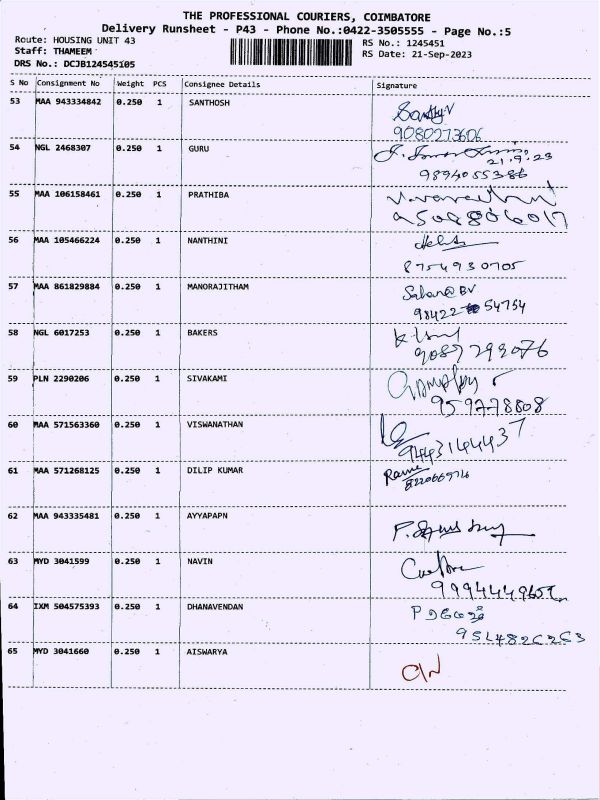 THE PROFESSIONAL COURIERS, COIMBATORE
Delivery Runsheet - P43 - Phone No.:0422-3505555 - Page No.:5
Route: HOUSING UNIT 43 RS No.: 1245451
Staff: THAMEEM RS Date: 21-Sep-2023
DRS No.: DCJB124545105
S No Consignment No Weight PCS Consignee Details Signature
53 MAA 943334842 0.250 1 SANTHOSH
9080273606
54 NGL 2468307 0.250 1 GURU
21.9.23
9894055386
55 MAA 106158461 0.250 1 PRATHIBA
9508806017
56 MAA 105466224 0.250 1 NANTHINI
8754930705
57 MAA 861829884 0.250 1 MANORAJITHAM
98422 54754
58 NGL 6017253 0.250 1 BAKERS
9087299076
59 PLN 2290206 0.250 1 SIVAKAMI
959778808
60 MAA 571563360 0.250 1 VISWANATHAN
9443144437
61 MAA 571268125 0.250 1 DILIP KUMAR
62 MAA 943335481 0.250 1 AYYAPAPN
63 MYD 3041599 0.250 1 NAVIN
64 IXM 504575393 0.250 1 DHANAVENDAN
65 MYD 3041660 0.250 1 AISWARYA